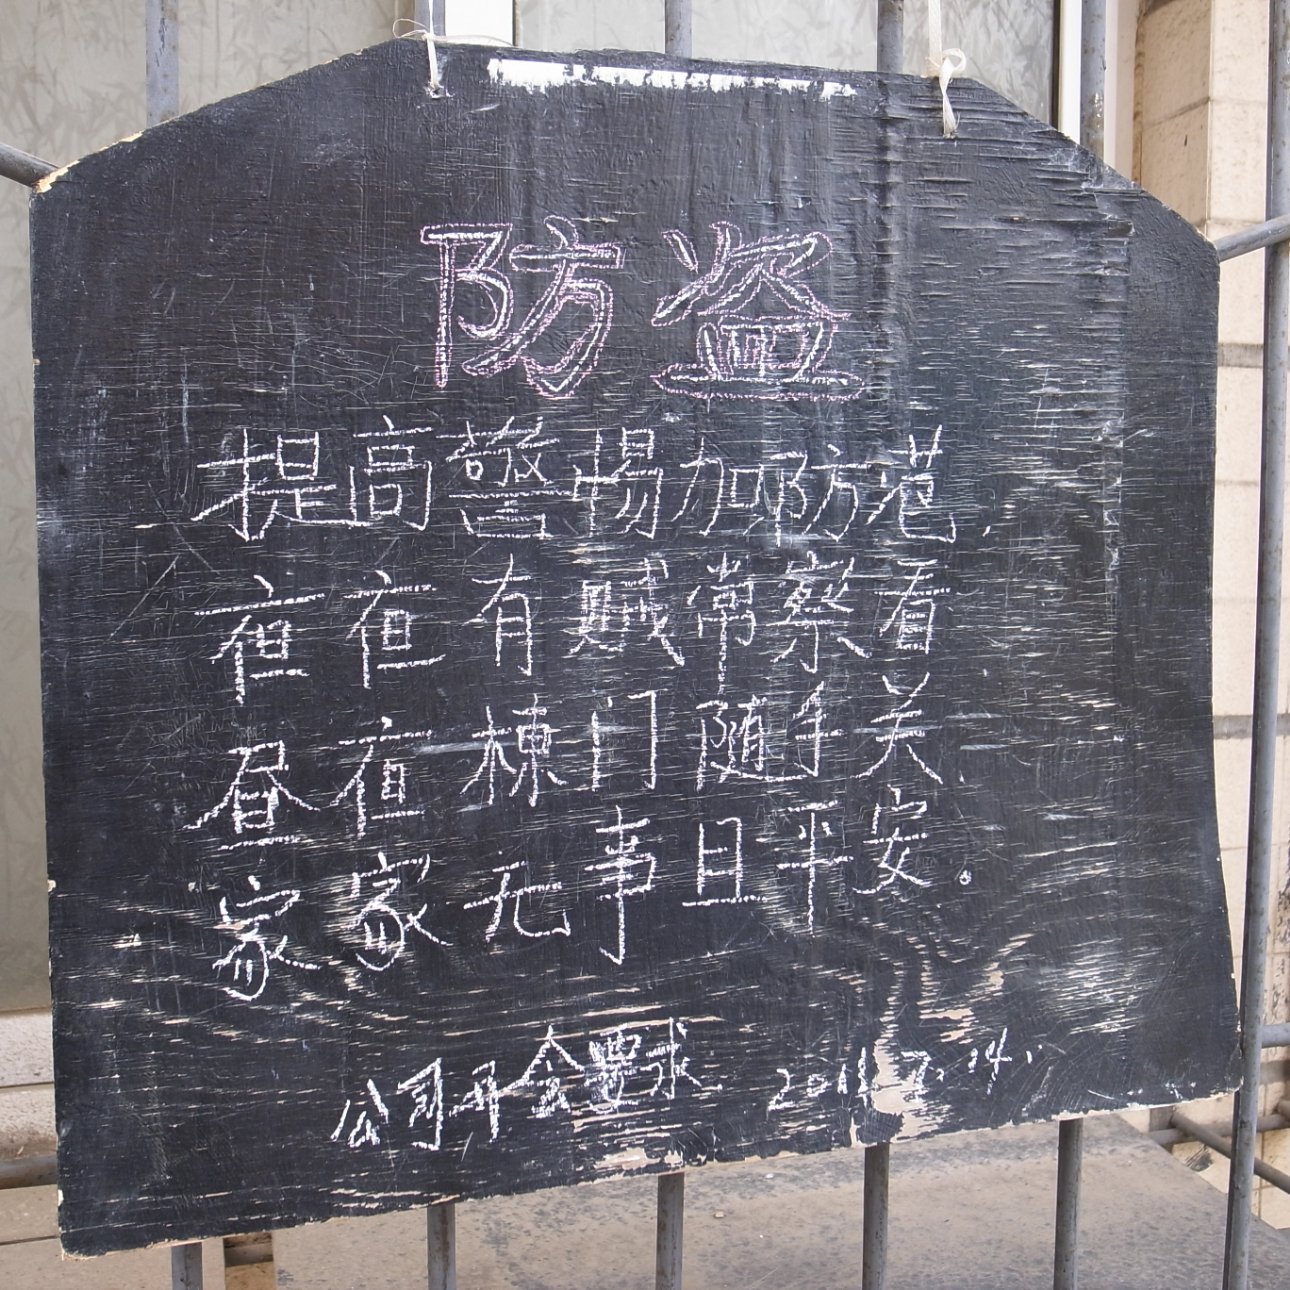 防盗
提高警惕加防范,
夜夜有贼常察看
昼夜栋门随手关.
家家无事日平安。
公司开会要求 2011.7.14.